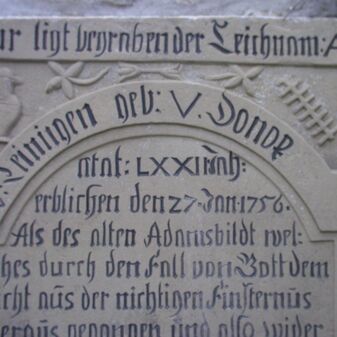 ur ligt begraben der Leichnam: A
v. Leiningen geb: V. Donop
ætat: LXXI Jah:
erblichen den 27 Jan: 1756.
Als des alten Adamsbildt wel-
ches durch den Fall von Gott dem
icht aus der nichtigen Finsternus
eraus gegangen und also wider